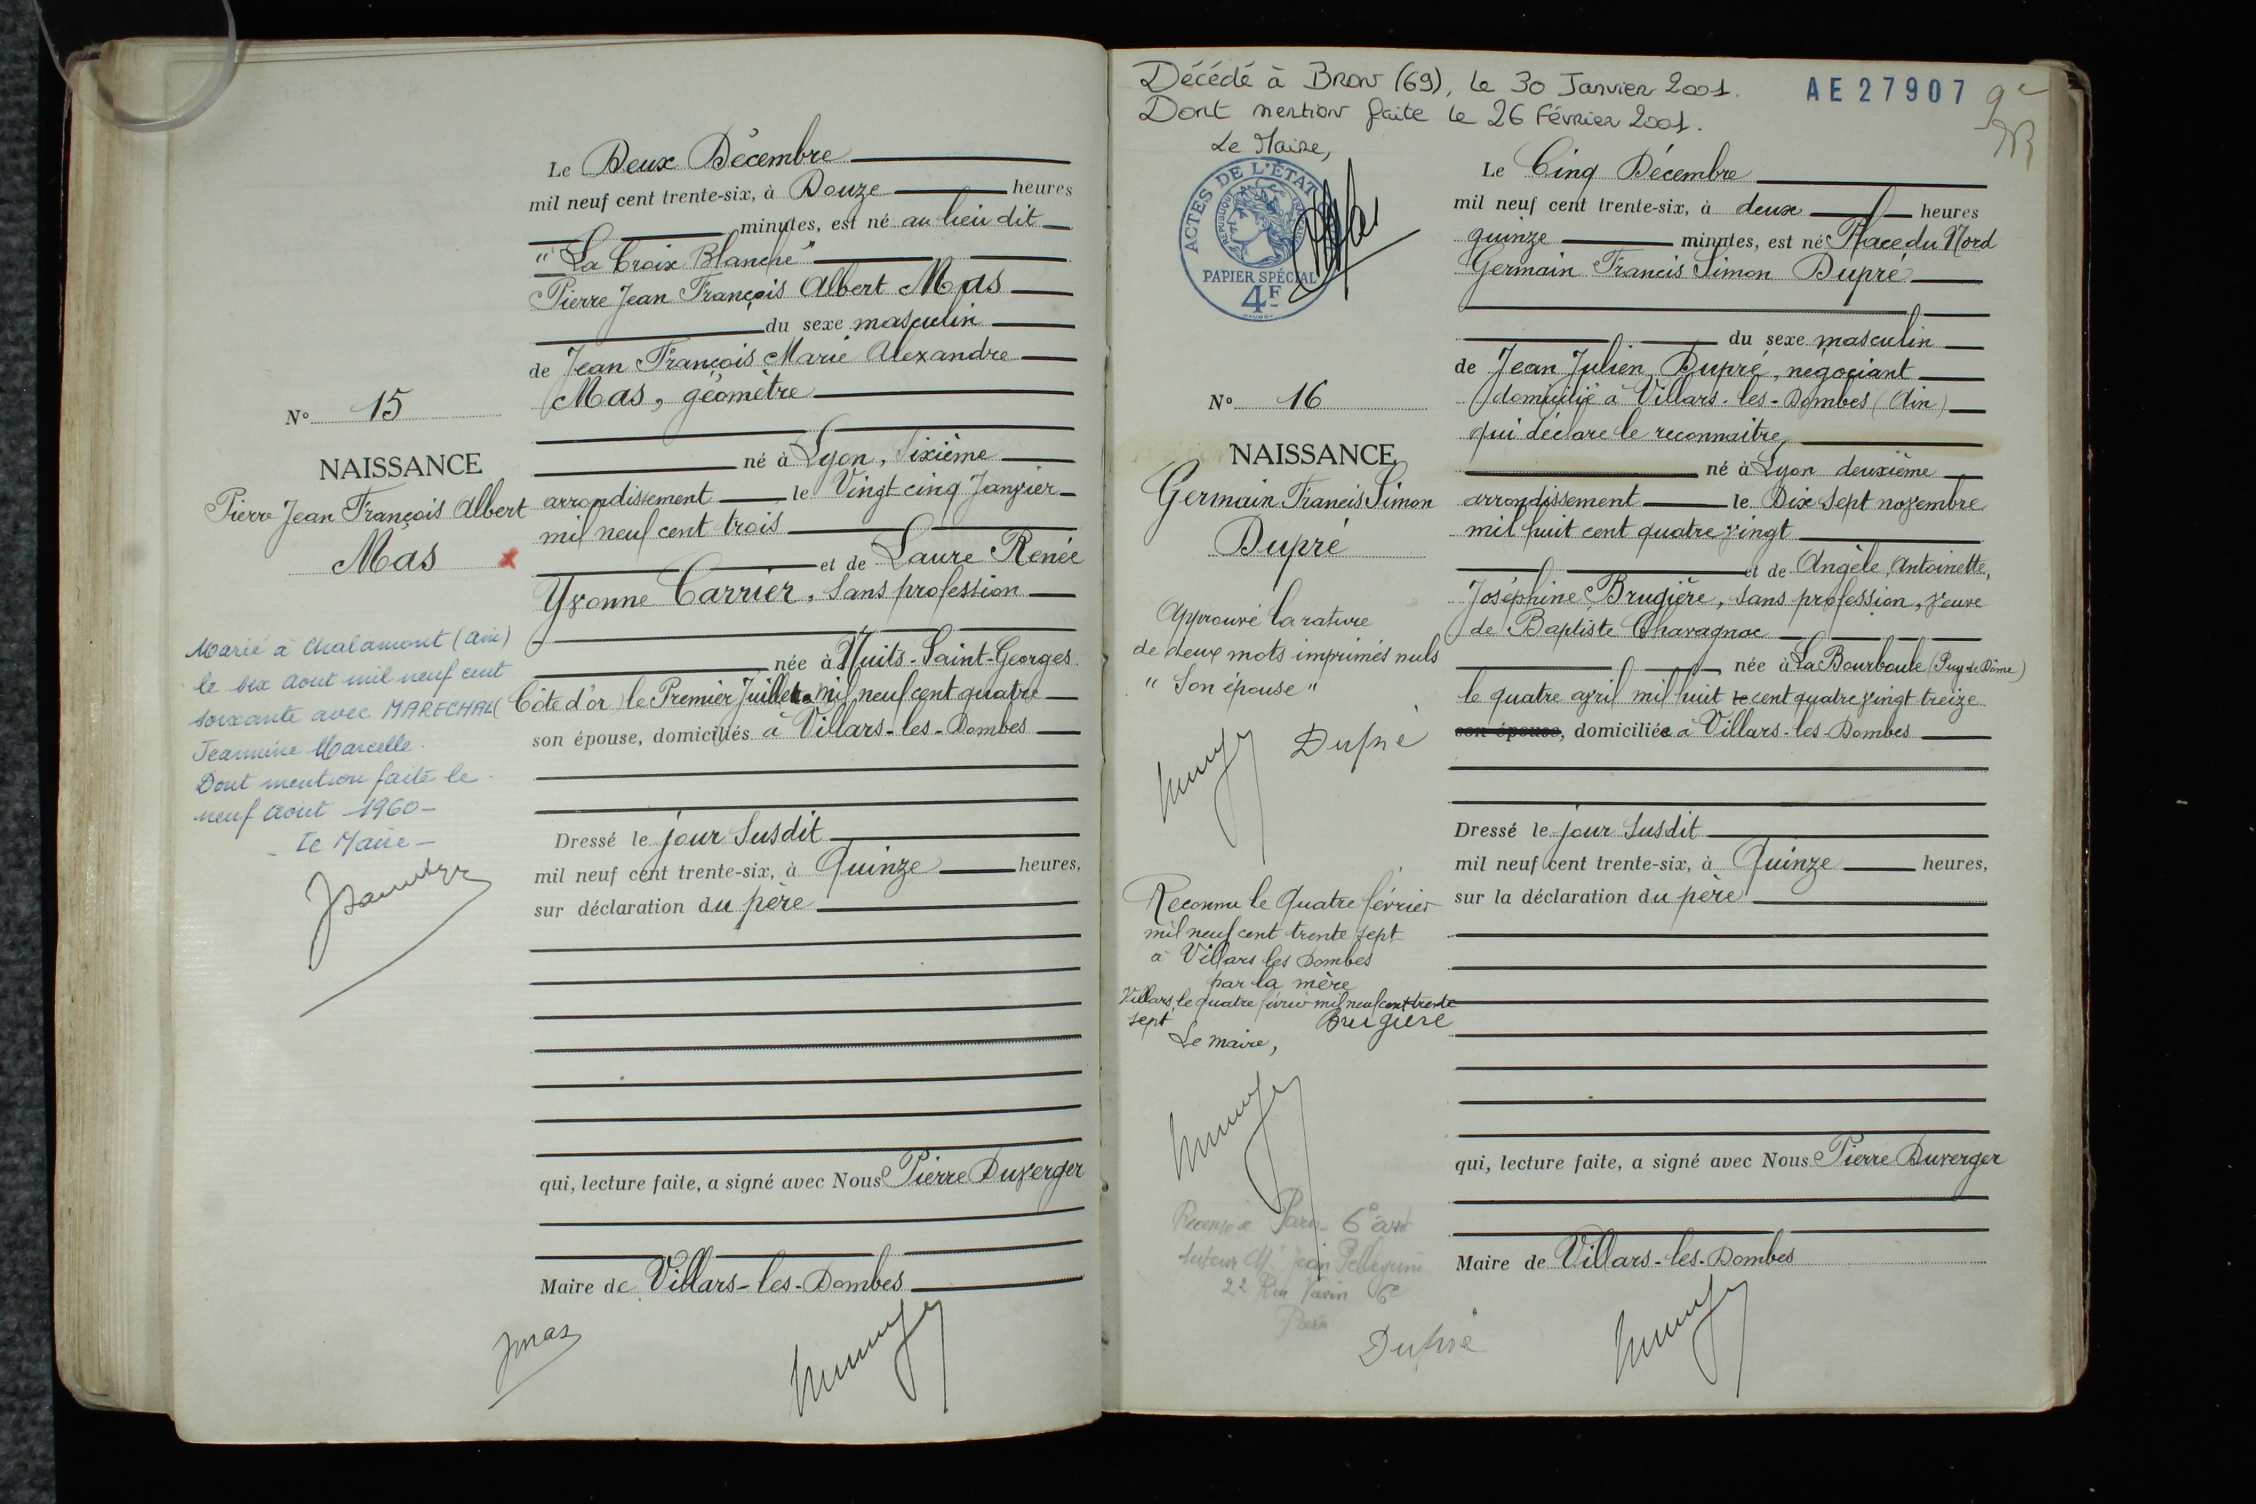 Le Deux Décembre
mil neuf cent trente-six, à Douze heures
minutes, est né au lieu dit
"La Croix Blanche"
Pierre Jean François Albert Mas
du sexe masculin
de Jean François Marie Alexandre
Mas, géomètre
né à Lyon, Sixième
arrondissement le Vingt cinq Janvier
mil neuf cent trois
et de Laure Renée
Yvonne Carrier, Sans profession
née à Nuits-Saint-Georges
(Côte d'or) le Premier Juillet mil neuf cent quatre
son épouse, domiciliés à Villars-les-Dombes
Dressé le jour Susdit
mil neuf cent trente-six, à Quinze heures,
sur déclaration du père
qui, lecture faite, a signé avec Nous Pierre Duverger
Maire de Villars-les-Dombes
Jmas
N° 15
NAISSANCE
Pierre Jean François Albert
Mas
x
Marié à Chalamont (Ain)
le six Aout mil neuf cent
soixante avec MARECHAL
Jeannine Marcelle.
Dont mention faite le
neuf Aout 1960-
Le Maire-
Décédé à Bron (69), le 30 Janvier 2001.
Dont mention faite le 26 Février 2001.
Le Maire,
AE 27907
ACTES DE L'ÉTAT
PAPIER SPÉCIAL
4F
N° 16
NAISSANCE
Germain Francis Simon
Dupré
Approuvé la rature
de deux mots imprimés nuls
"Son épouse"
Dupré
Reconnu le Quatre février
mil neuf cent trente sept
à Villars les Dombes
par la mère
Villars, le quatre février mil neuf cent trente
sept
Brugière
Le maire,
6e arrt
Jean
22 Rue Vavin 6e
Paris
Le Cinq Décembre
mil neuf cent trente-six, à deux heures
quinze minutes, est né Place du Nord
Germain Francis Simon Dupré
du sexe masculin
de Jean Julien Dupré, négociant
domicilié à Villars-les-Dombes (Ain)
qui déclare le reconnaitre,
né à Lyon deuxième
arrondissement le Dix Sept novembre
mil huit cent quatre vingt
et de Angèle, Antoinette,
Joséphine Brugière, sans profession, veuve
de Baptiste Chavagnac
née à La Bourboule (Puy de Dôme)
le quatre avril mil huit le cent quatre vingt treize
son épouse, domiciliée à Villars-les-Dombes
Dressé le jour Susdit
mil neuf cent trente-six, à Quinze heures,
sur la déclaration du père
qui, lecture faite, a signé avec Nous Pierre Duverger
Maire de Villars-les-Dombes
Dupré